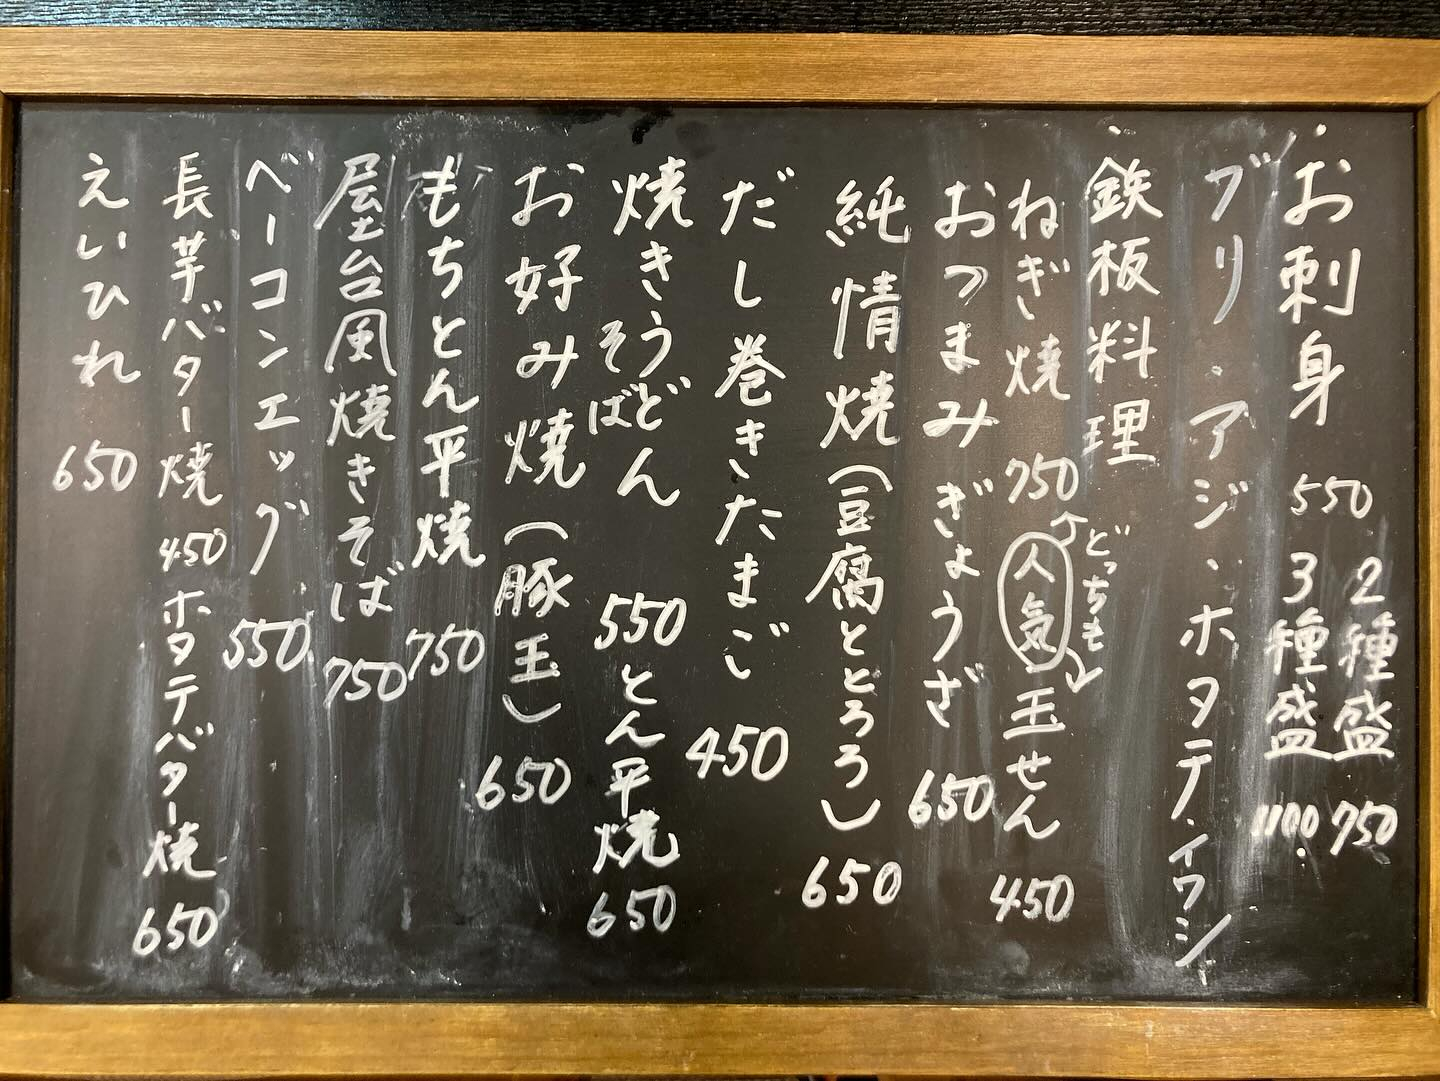 お刺身 550 2種盛 750
3種盛 1100
ブリ・アジ・ホタテ・イワシ
鉄板料理
ねぎ焼 750 人気 玉せん 450
どっちも
おつまみぎょうざ 650
純情焼(豆腐ととろろ) 650
だし巻きたまご 450
焼きうどん 550 とん平焼 650
そば
お好み焼(豚玉) 650
もちとん平焼 750
屋台風焼きそば 750
ベーコンエッグ 550
長芋バター焼 450 ホタテバター焼 650
えいひれ 650